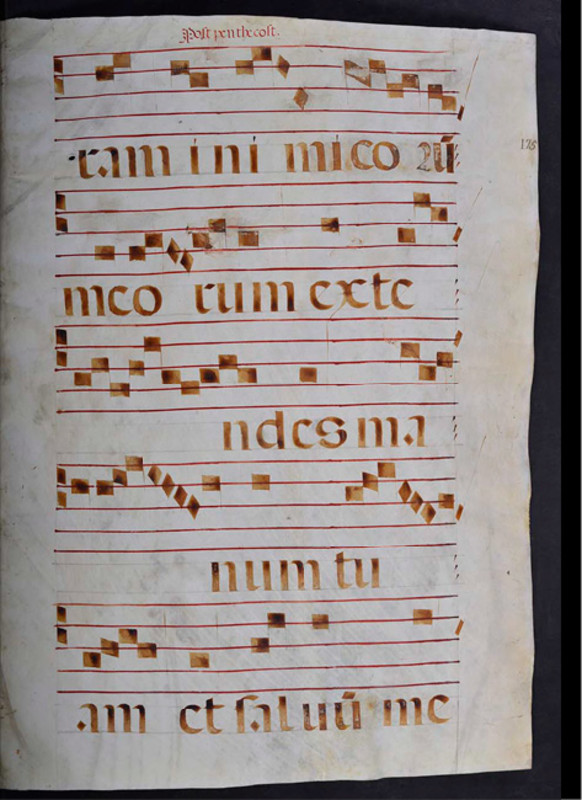 Post penthecost.
ram ini mico rū
175
meo rum exte
ndes ma
num tu
am et saluū me